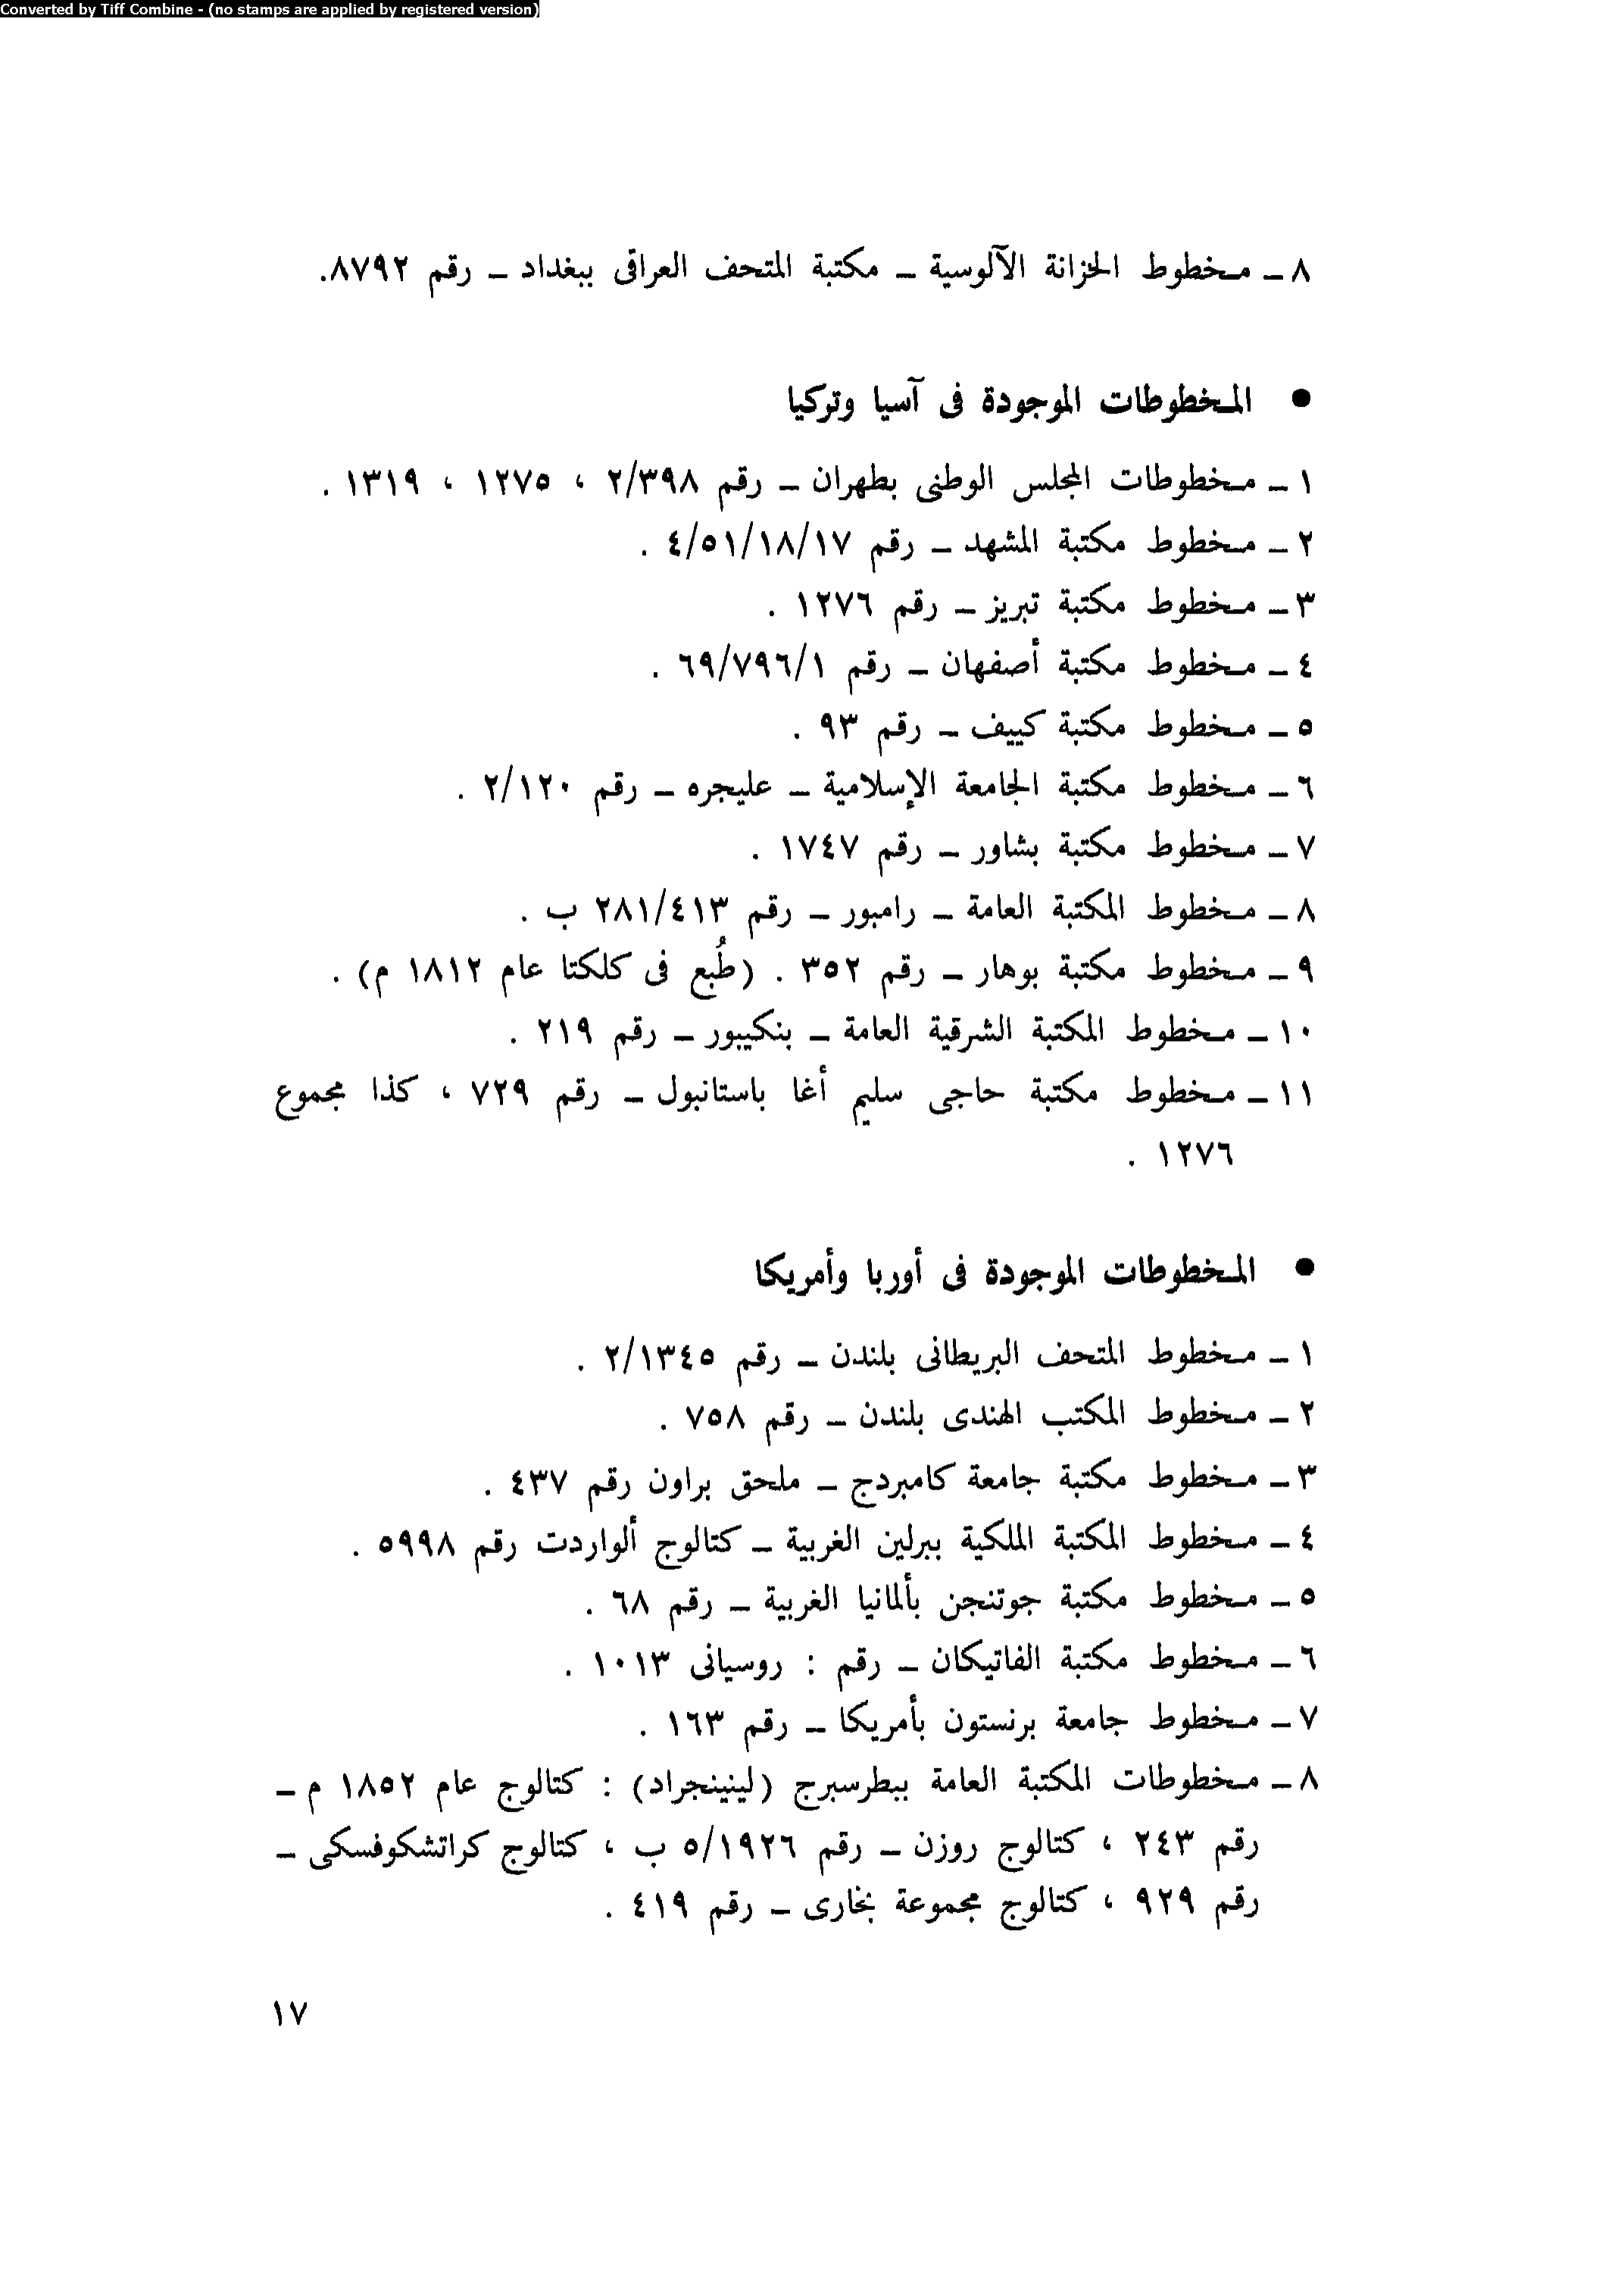 Converted by Tiff Combine - (no stamps are applied by registered version)
٨ ـ مخطوط الخزانة الآلوسية ـ مكتبة المتحف العراقى ببغداد ـ رقم ٨٧٩٢.
● المخطوطات الموجودة فى آسيا وتركيا
١ ـ مخطوطات المجلس الوطنى بطهران ـ رقم ٢/٣٩٨ ، ١٢٧٥ ، ١٣١٩ .
٢ ـ مخطوط مكتبة المشهد ـ رقم ٤/٥١/١٨/١٧ .
٣ ـ مخطوط مكتبة تبريز ـ رقم ١٢٧٦ .
٤ ـ مخطوط مكتبة أصفهان ـ رقم ٦٩/٧٩٦/١ .
٥ ـ مخطوط مكتبة كييف ـ رقم ٩٣ .
٦ ـ مخطوط مكتبة الجامعة الإسلامية ـ عليجره ـ رقم ٢/١٢٠ .
٧ ـ مخطوط مكتبة بشاور ـ رقم ١٧٤٧ .
٨ ـ مخطوط المكتبة العامة ـ رامبور ـ رقم ٢٨١/٤١٣ ب .
٩ ـ مخطوط مكتبة بوهار ـ رقم ٣٥٢ . (طُبع فى كلكتا عام ١٨١٢ م) .
١٠ ـ مخطوط المكتبة الشرقية العامة ـ بنكيبور ـ رقم ٢١٩ .
١١ ـ مخطوط مكتبة حاجى سليم أغا باستانبول ـ رقم ٧٢٩ ، كذا مجموع
١٢٧٦ .
● المخطوطات الموجودة فى أوربا وأمريكا
١ ـ مخطوط المتحف البريطانى بلندن ـ رقم ٢/١٣٤٥ .
٢ ـ مخطوط المكتب الهندى بلندن ـ رقم ٧٥٨ .
٣ ـ مخطوط مكتبة جامعة كامبردج ـ ملحق براون رقم ٤٣٧ .
٤ ـ مخطوط المكتبة الملكية ببرلين الغربية ـ كتالوج ألواردت رقم ٥٩٩٨ .
٥ ـ مخطوط مكتبة جوتنجن بألمانيا الغربية ـ رقم ٦٨ .
٦ ـ مخطوط مكتبة الفاتيكان ـ رقم : روسيانى ١٠١٣ .
٧ ـ مخطوط جامعة برنستون بأمريكا ـ رقم ١٦٣ .
٨ ـ مخطوطات المكتبة العامة ببطرسبرج (لينينجراد) : كتالوج عام ١٨٥٢ م ـ
رقم ٢٤٣ ، كتالوج روزن ـ رقم ٥/١٩٢٦ ب ، كتالوج كراتشكوفسكى ـ
رقم ٩٢٩ ، كتالوج مجموعة بخارى ـ رقم ٤١٩ .
١٧